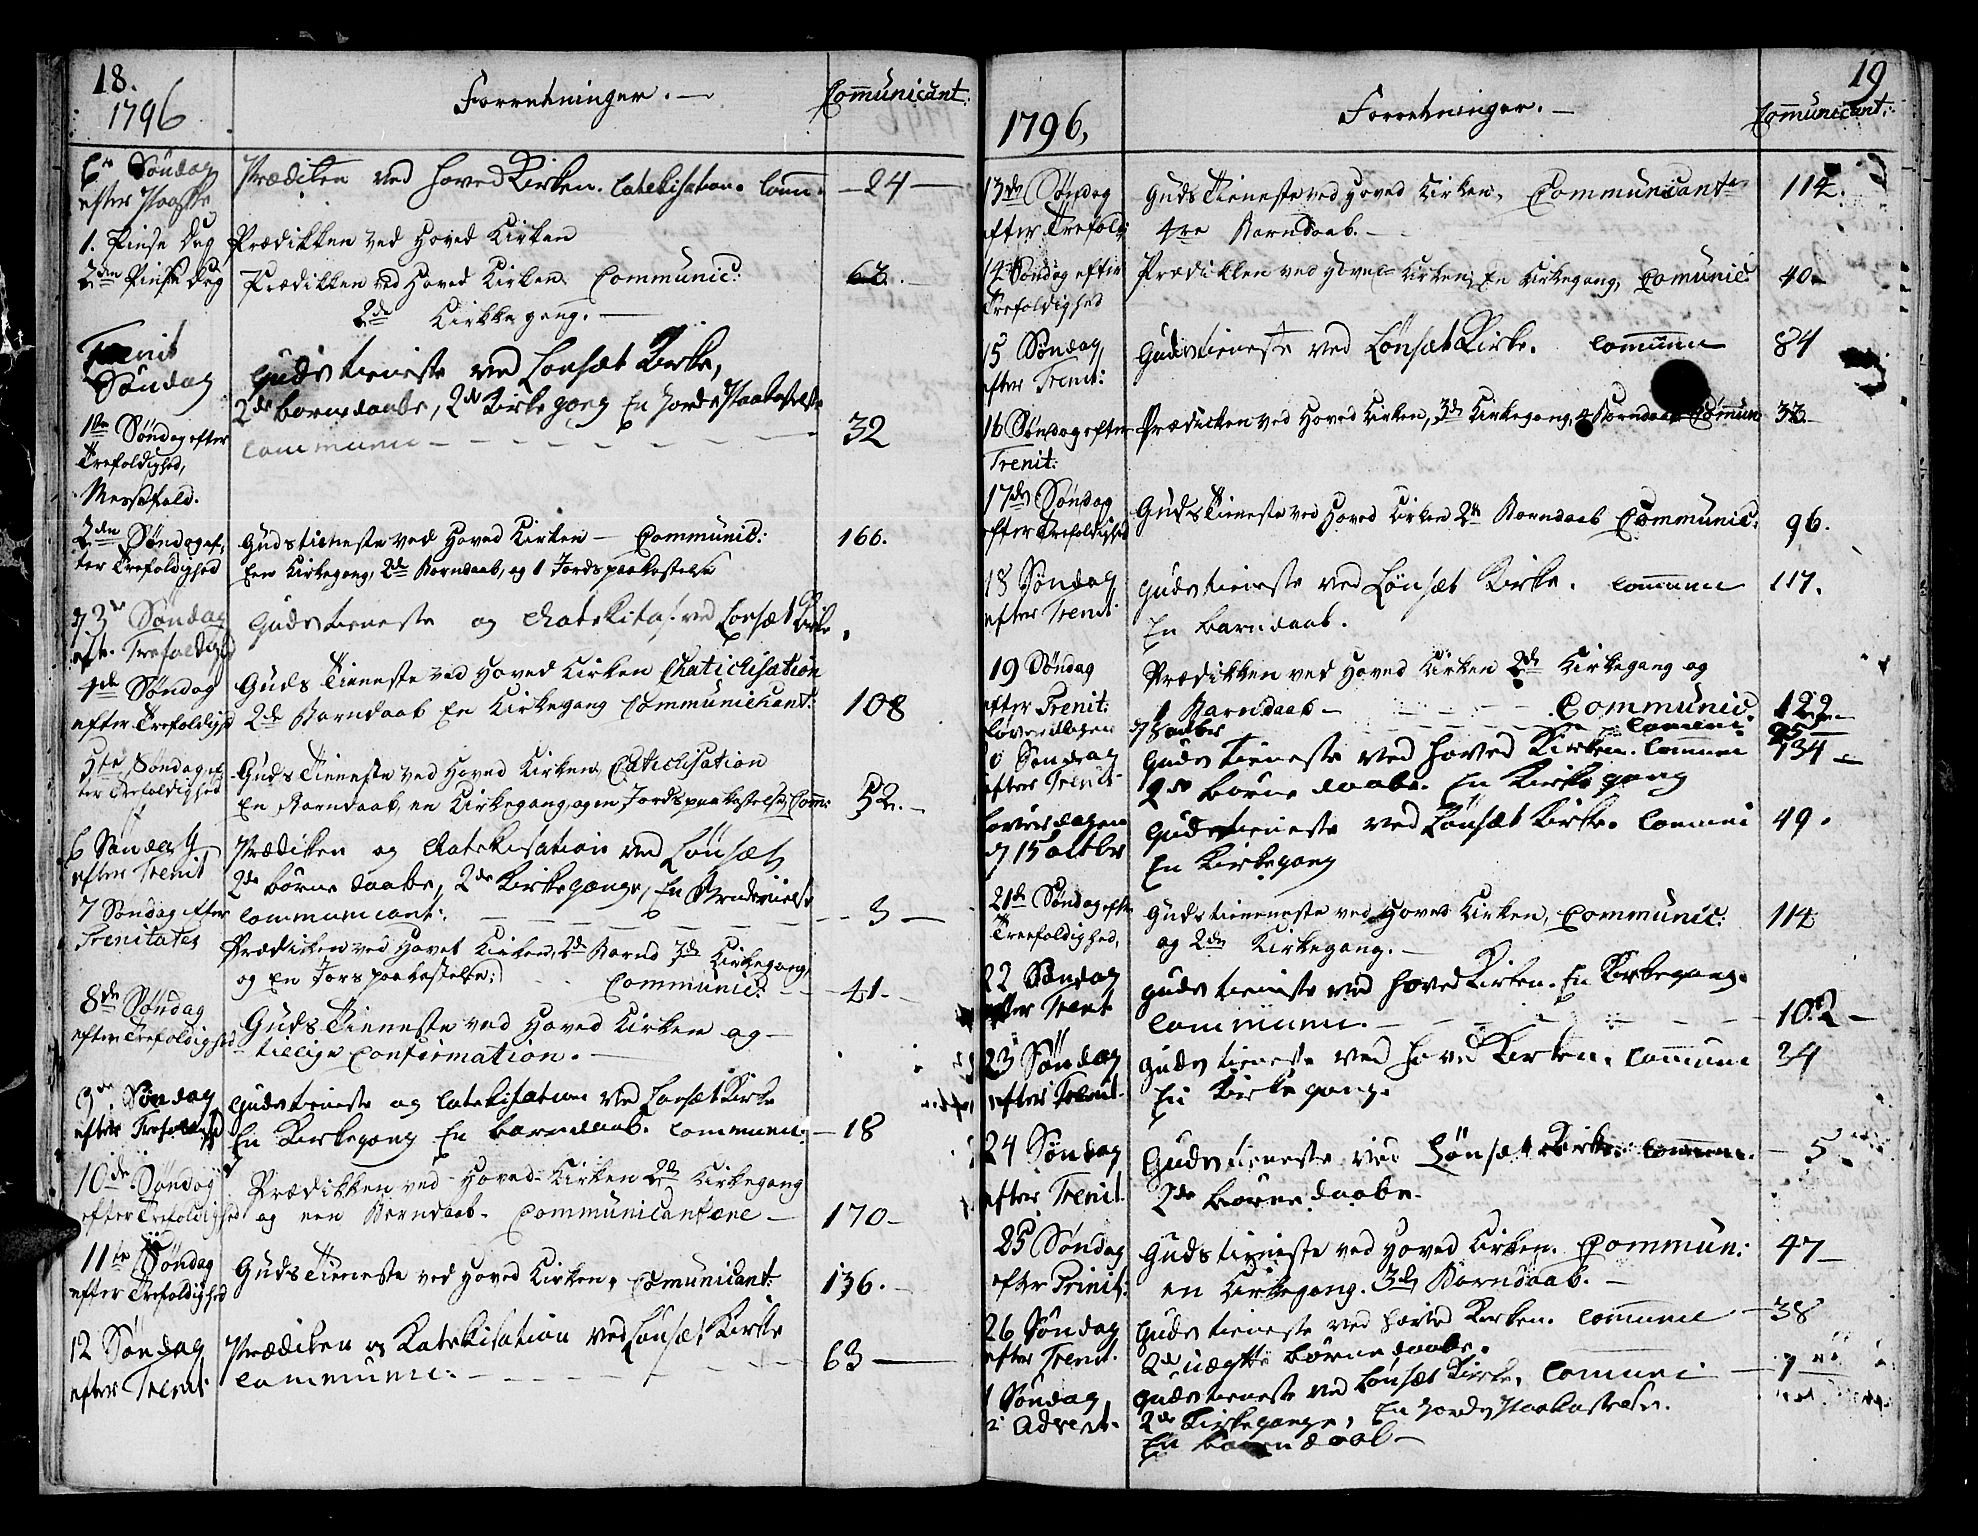 18.
1796
Forretninger. —
Communicant:
6te Søndag
efter Paaske
Prædiken ved Hoved Kirken. Catekisation. Com. — 24 —
1. Pinse Dag Prædikken ved Hoved Kirken
2den Pinse Dag Prædikken ved Hoved Kirken Communic: 63. —
2de Kirkkegang. —
Trenit
Søndag
Gudstieneste ved Lonsæt Kirke,
2de børnedaabe, 2de Kirkegang En Jords Paakastelse
1te Søndag efter
Trefoldighed,
Messefald.
Communi — — — — — 32
2den Søndag ef-
ter Trefoldighed
Gudstieneste ved Hoved Kirken — Communic: 166.
Een Kirkegang, 2de Barndaab, og 1 Jordspaakastelse
3de Søndag
eft. Trefoldighed
Gudstieneste og Chatekitas. ved Lonsæt Kirke.
4de Søndag
efter Trefoldighd
Guds Tieneste ved Hoved Kirken Chatichisation
2de Barndaab En Kirkegang Communichant: 108
5te Søndag ef-
ter Trefoldighed
Guds Tieneste ved Hoved Kirken Catichisation
En Barndaab, en Kirkegang, og en Jordspaakastelse, Com: 52. —
6 Søndag
efter Trenit
Prædiken og Chatekisation ved Lønsæt
2de børne daabe, 2de Kirkegange, En
7 Søndag efter
Trenitates
Communicant: — — — 3 —
Prædiken ved Hovet Kirken, 2de Barnd 3de Kirkegang,
og En Jorspaakastelse: Communic: — 41. —
8de Søndag
efter Trefoldighed
Guds Tieneste ved Hoved Kirken og —
tillige Confirmation. —
9de Søndag
efter Trefoldighd
Gudstieneste og Catekisation ved Lonsæt Kirke
En Kirkegang En barndaab. Communi: — 18
10de Søndag
efter Trefoldighed
Prædikken ved Hoved Kirken 2de Kirkegang
og een Barndaab. Communicantere — 170 —
11te Søndag
efter Trefoldighed
Guds Tieneste ved Hoved Kirken, Comunicant: 136. —
12 Søndag
efter Trenit
Prædiken og Katekisation ved Lonsæt Kirke
Communi: — — — — 63 —
19
1796,
Forretninger. —
Communicant:
13de Søndag
efter Trefold:
Guds Tieneste ved Hoved Kirken, Communicante 114.
4re Barndaab. —
14 Søndag efter
Trefoldighed
Prædikken ved Hoved Kirken, En Kirkegang, Comunic: 40 —
15 Søndag
efter Trenit:
Gudstieneste ved Lønsæt Kirke. Communi 84
16 Søndag efter
Trenit:
Prædicken ved Hoved Kirken, 3de Kirkegang, 4 Barndaab Comun 33. —
17de Søndag
efter Trefoldighed
Guds Tieneste ved Hoved Kirken 2de Barndaab Communic: 96.
18 Søndag
efter Trenit
Gudstieneste ved Lønsæt Kirke. Communi 117.
En barndaab.
19 Søndag
efter Trenit:
Prædikken ved Hoved Kirken 2de Kirkegang og
1 Barndaab — — — Communic. 122 —
Løverdagen
d 8 octbr — — — Communi: 25
20 Søndag
efter Trenit
Guds Tieneste ved Hoved Kirken. Communi 134 —
2de børne daabe. En Kirkegang
Løverdagen
d 15 octbr
Gudstieneste ved Lønsæt Kirke. Communi 49.
En Kirkegang
21de Søndag efter
Treefoldighed,
Gudstieneste ved Hoved Kirken, Communic: 114.
og 2de Kirkegang. —
22 Søndag
efter Trenit
Gudstieneste ved Hoved Kirken. En Kirkegang.
Communi. — — — — — 102 —
23 Søndag
efter Trenit.
Gudstieneste ved Hoved Kirken. Communi 24
En Kirkegang.
24 Søndag
efter Trenit.
Gudstieneste ved Lønsæt Kirke. Communi. — 5
2de børne daabe.
25 Søndag
efter Trinit:
Gudstieneste ved Hoved Kirken. Commun: 47 —
en Kirkegang. 3de Barndaab. —
26 Søndag
efter Trenit.
Gudstieneste ved Hoved Kirken. Communi — 38
2de uægte børnedaabe.
1 Søndag
i Advent.
Gudstieneste ved Lonsæt Kirke, Communi — 7 —
2de Kirkegange, En Jords Paakastelse.
En barn daab —